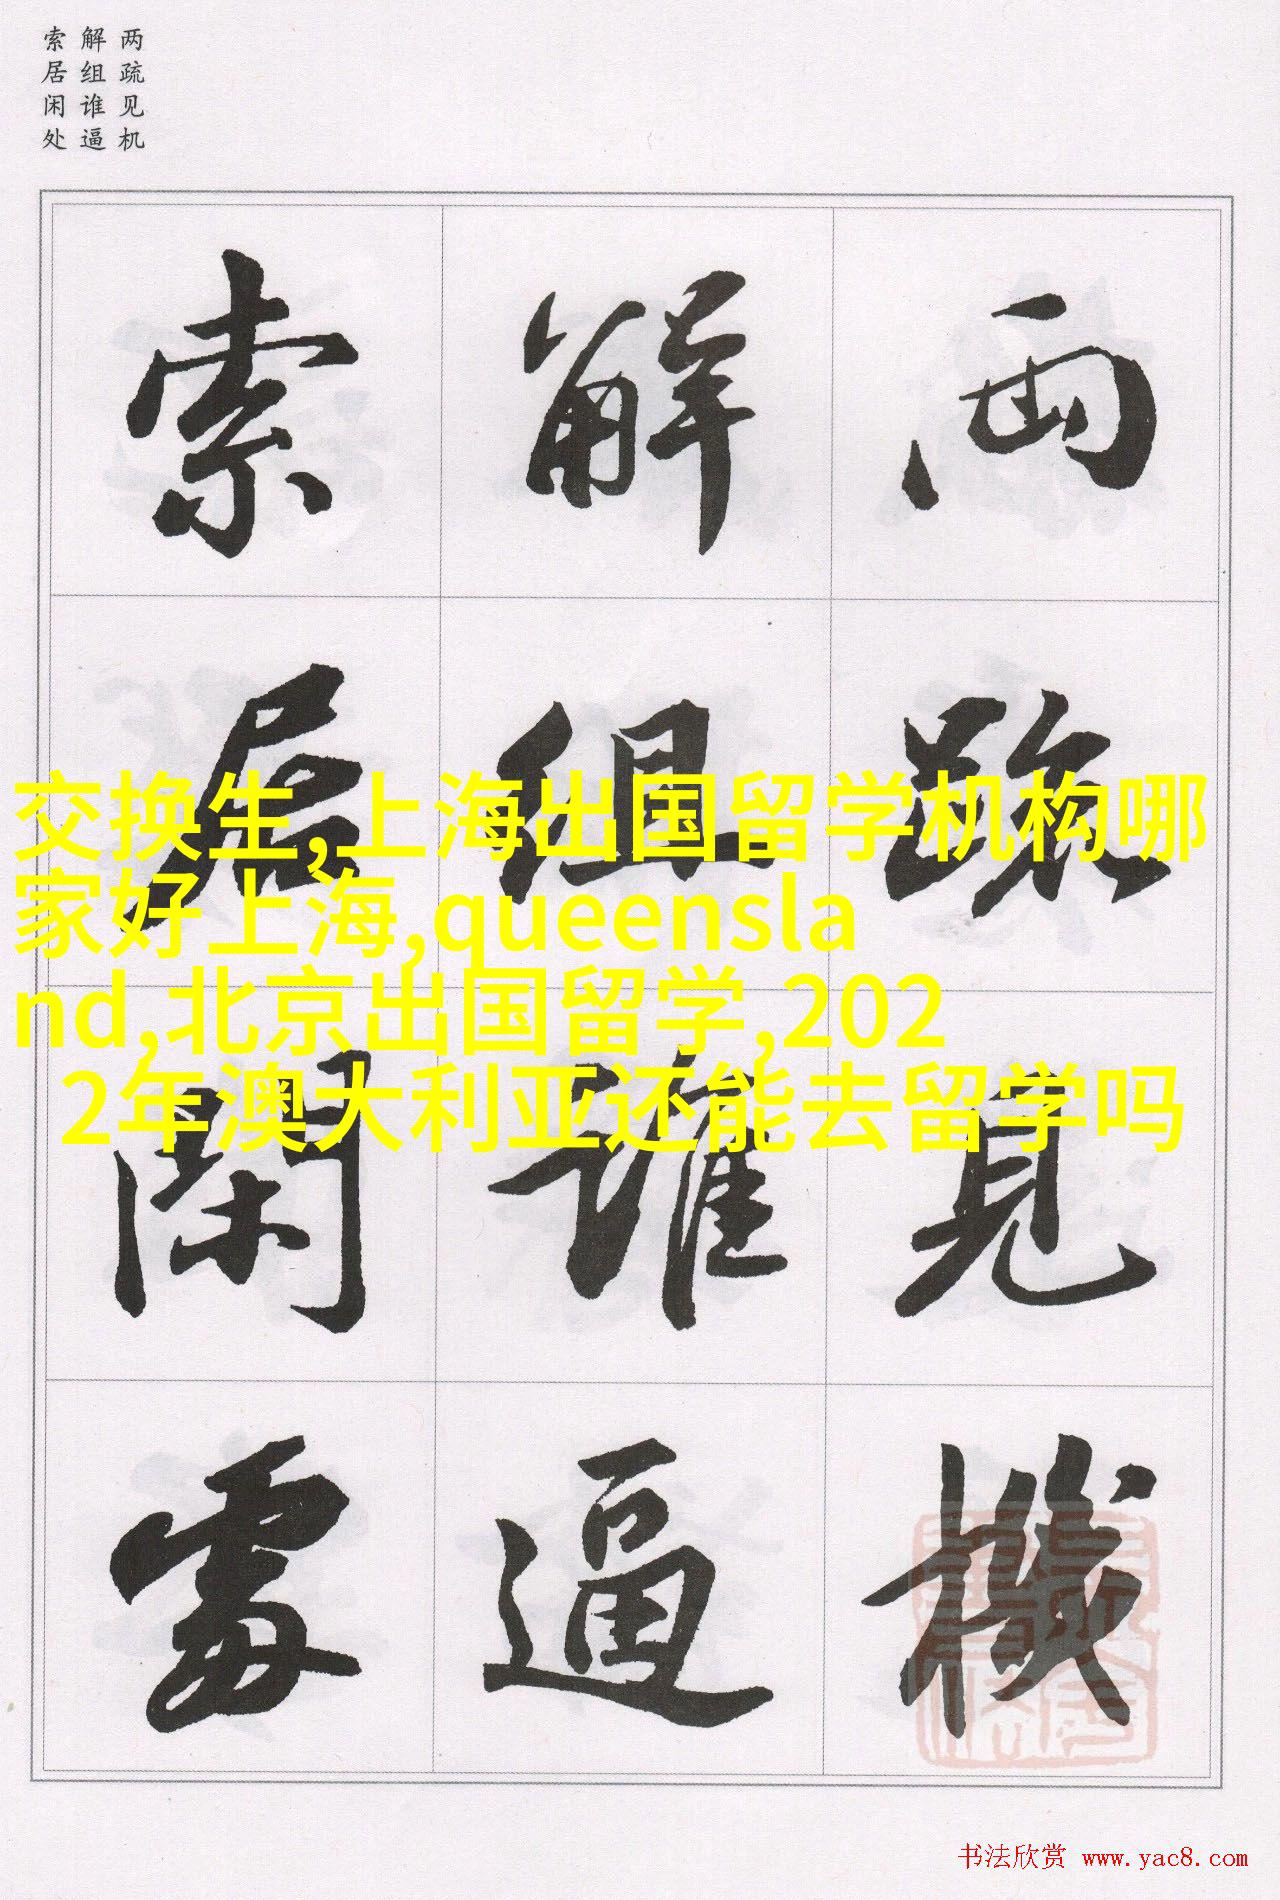 两疏见机
解组谁逼
索居闲处
兩疏見機
解組誰逼
索居閑處
交换生,上海出国留学机构哪
家好上海,queensla
nd,北京出国留学,202
2年澳大利亚还能去留学吗
书法欣赏 www.yac8.com